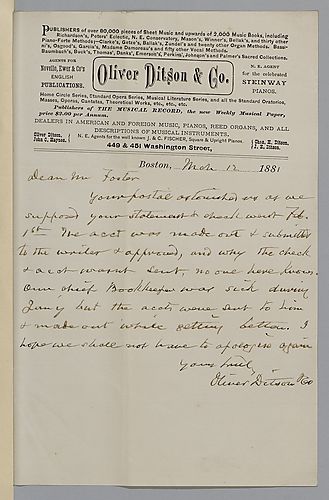 PUBLISHERS of over 80,000 pieces of Sheet Music and upwards of 2,000 Music Books, including
Richardson's, Peters' Eclectic, N. E. Conservatory, Mason's, Winner's, Bellak's, and thirty other
Piano-Forte Methods—Clarke's, Getze's, Bellak's, Zundel's and twenty other Organ Methods. Bassi-
ni's, Osgood's, Garcia's, Madame Damoreau's and fifty other Vocal Methods.
Baumbach's, Buck's, Thomas', Danks', Emerson's, Perkins', Johnson's and Palmer's Sacred Collections.
AGENTS FOR
Novello, Ewer & Co's
ENGLISH
PUBLICATIONS.
Oliver Ditson & Co.
N. E. AGENT
for the celebrated
STEINWAY
PIANOS.
Home Circle Series, Standard Opera Series, Musical Literature Series, and all the Standard Oratorios,
Masses, Operas, Cantatas, Theoretical Works, etc., etc., etc.
Publishers of THE MUSICAL RECORD, the new Weekly Musical Paper,
price $2.00 per Annum.
DEALERS IN AMERICAN AND FOREIGN MUSIC, PIANOS, REED ORGANS, AND ALL
DESCRIPTIONS OF MUSICAL INSTRUMENTS.
N. E. Agents for the well known J. & C. FISCHER, Square & Upright Pianos.
Oliver Ditson,
John C. Haynes.
Chas. H. Ditson.
J. E. Ditson.
449 & 451 Washington Street,
Boston, Mch 12 1881
Dear Mr Foster
Your postal astonished us as we
supposed your statement & check went Feb.
1st The acct was made out & submitted
to the writer & approved, and why the check
& acct wasnt sent, no one here knows.
Our chief Bookkeeper was sick during
Jan'y but the accts were sent to him
& made out while getting better. I
hope we shall not have to apologise again
Yours truly,
Oliver Ditson & Co